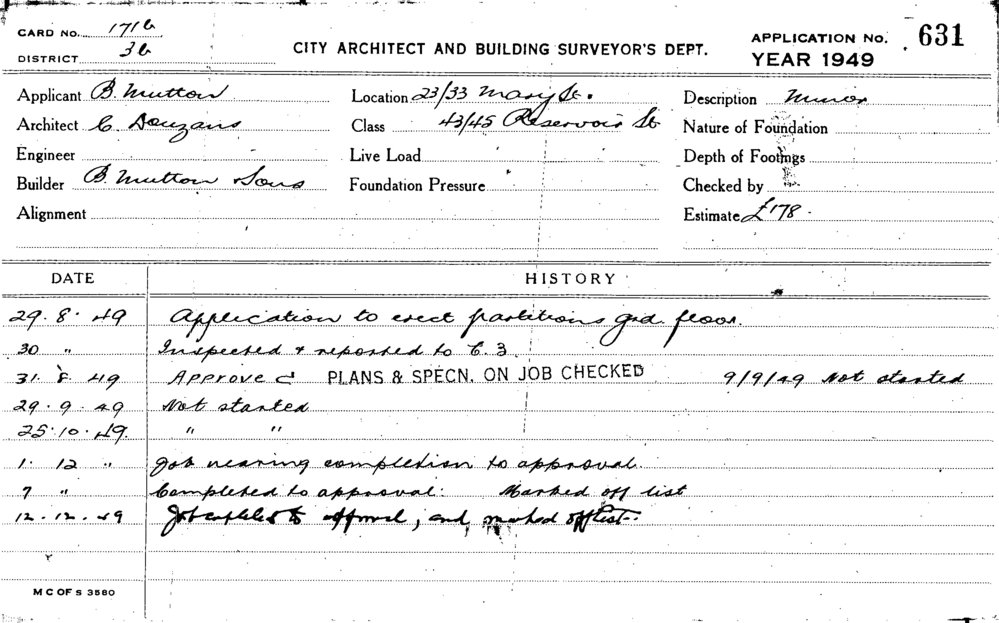 CARD No. 171b
DISTRICT 3b
CITY ARCHITECT AND BUILDING SURVEYOR'S DEPT.
APPLICATION No. 631
YEAR 1949
Applicant B. Mutton
Location 23/33 Mary St.
Description Minor
Architect C.
Class 43/45 Reservoir St
Nature of Foundation
Engineer
Live Load
Depth of Footings
Builder B. Mutton & Sons
Foundation Pressure
Checked by
Alignment
Estimate £178.
DATE HISTORY
29. 8. 49 Application to erect partitions grd. floor.
30 " Inspected & reported to C.3
31. 8. 49 Approved PLANS & SPECN. ON JOB CHECKED 9/9/49 Not started
29. 9. 49 Not started
25. 10. 49. " "
1. 12 " Job nearing completion to approval.
7 " Completed to approval. Marked off list
12. 12. 49 Job completed to approval, and marked off list.
M C OF S 3580